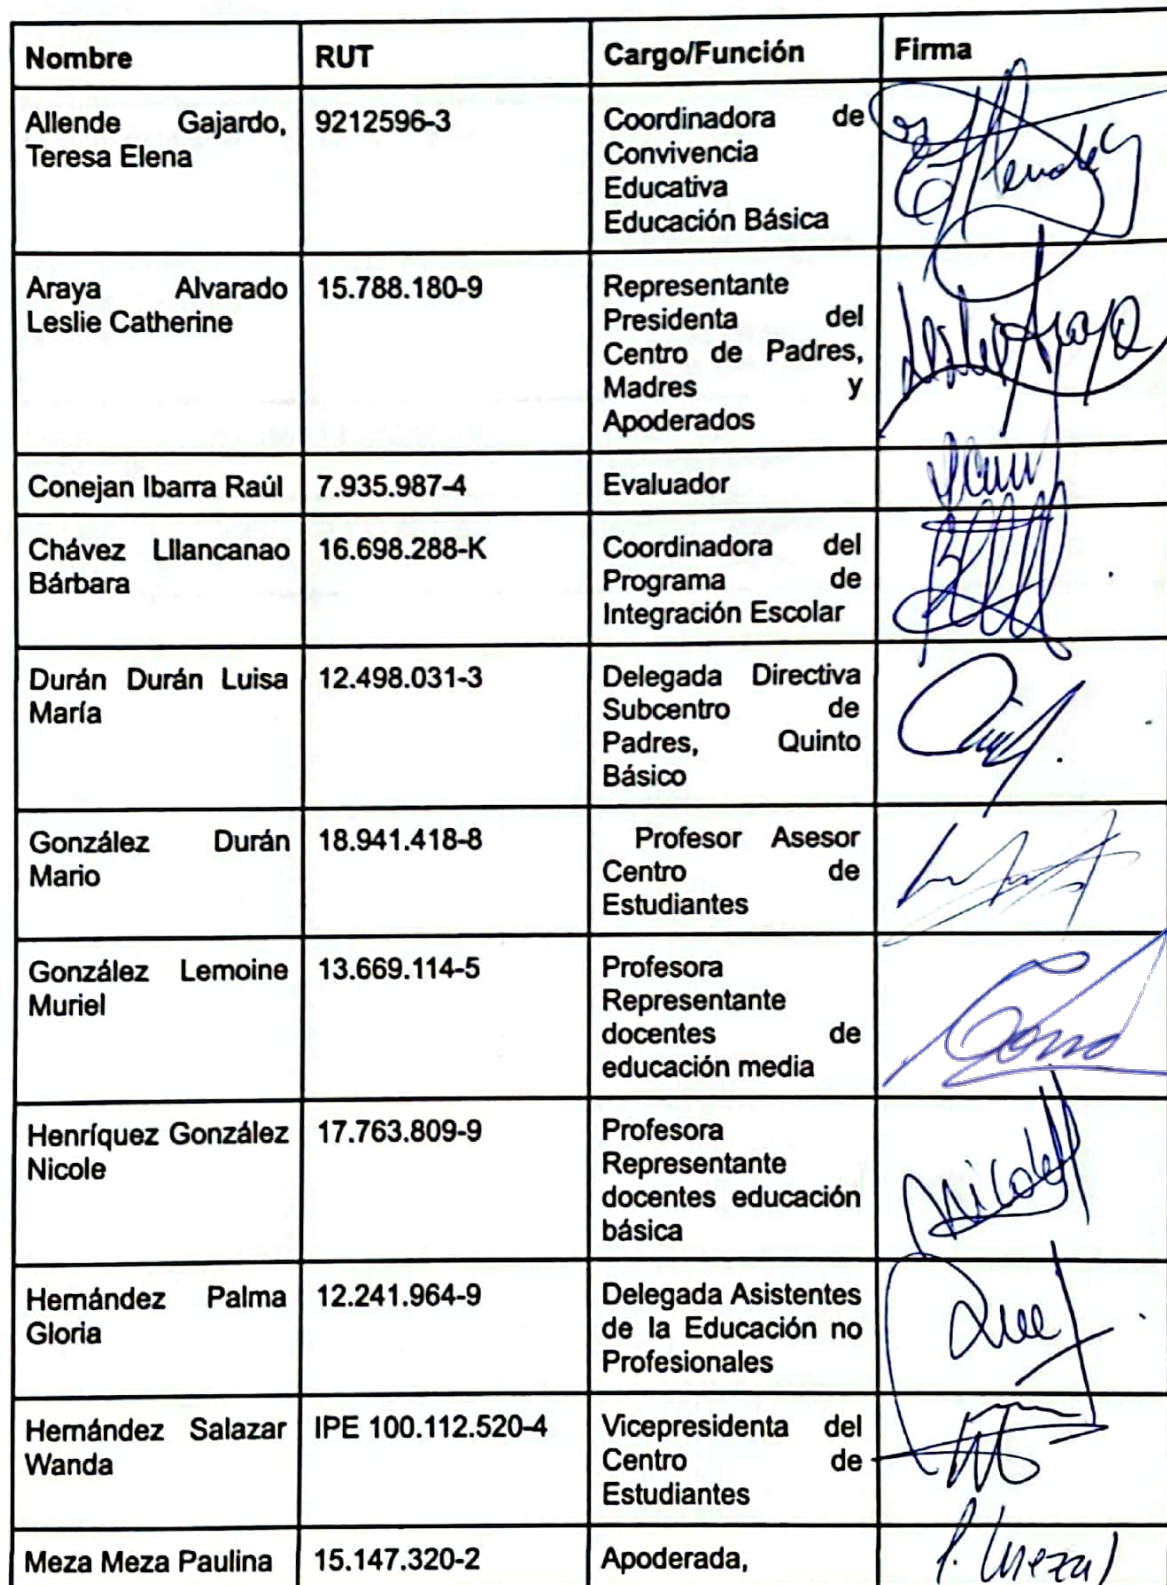 Nombre RUT Cargo/Función Firma
Allende Gajardo, 9212596-3 Coordinadora de
Teresa Elena Convivencia
Educativa
Educación Básica
Araya Alvarado 15.788.180-9 Representante
Leslie Catherine Presidenta del
Centro de Padres,
Madres y
Apoderados
Conejan Ibarra Raúl 7.935.987-4 Evaluador
Chávez Lllancanao 16.698.288-K Coordinadora del
Bárbara Programa de
Integración Escolar
Durán Durán Luisa 12.498.031-3 Delegada Directiva
María Subcentro de
Padres, Quinto
Básico
González Durán 18.941.418-8 Profesor Asesor
Mario Centro de
Estudiantes
González Lemoine 13.669.114-5 Profesora
Muriel Representante
docentes de
educación media
Henríquez González 17.763.809-9 Profesora
Nicole Representante
docentes educación
básica
Hernández Palma 12.241.964-9 Delegada Asistentes
Gloria de la Educación no
Profesionales
Hernández Salazar IPE 100.112.520-4 Vicepresidenta del
Wanda Centro de
Estudiantes
Meza Meza Paulina 15.147.320-2 Apoderada, P. Meza